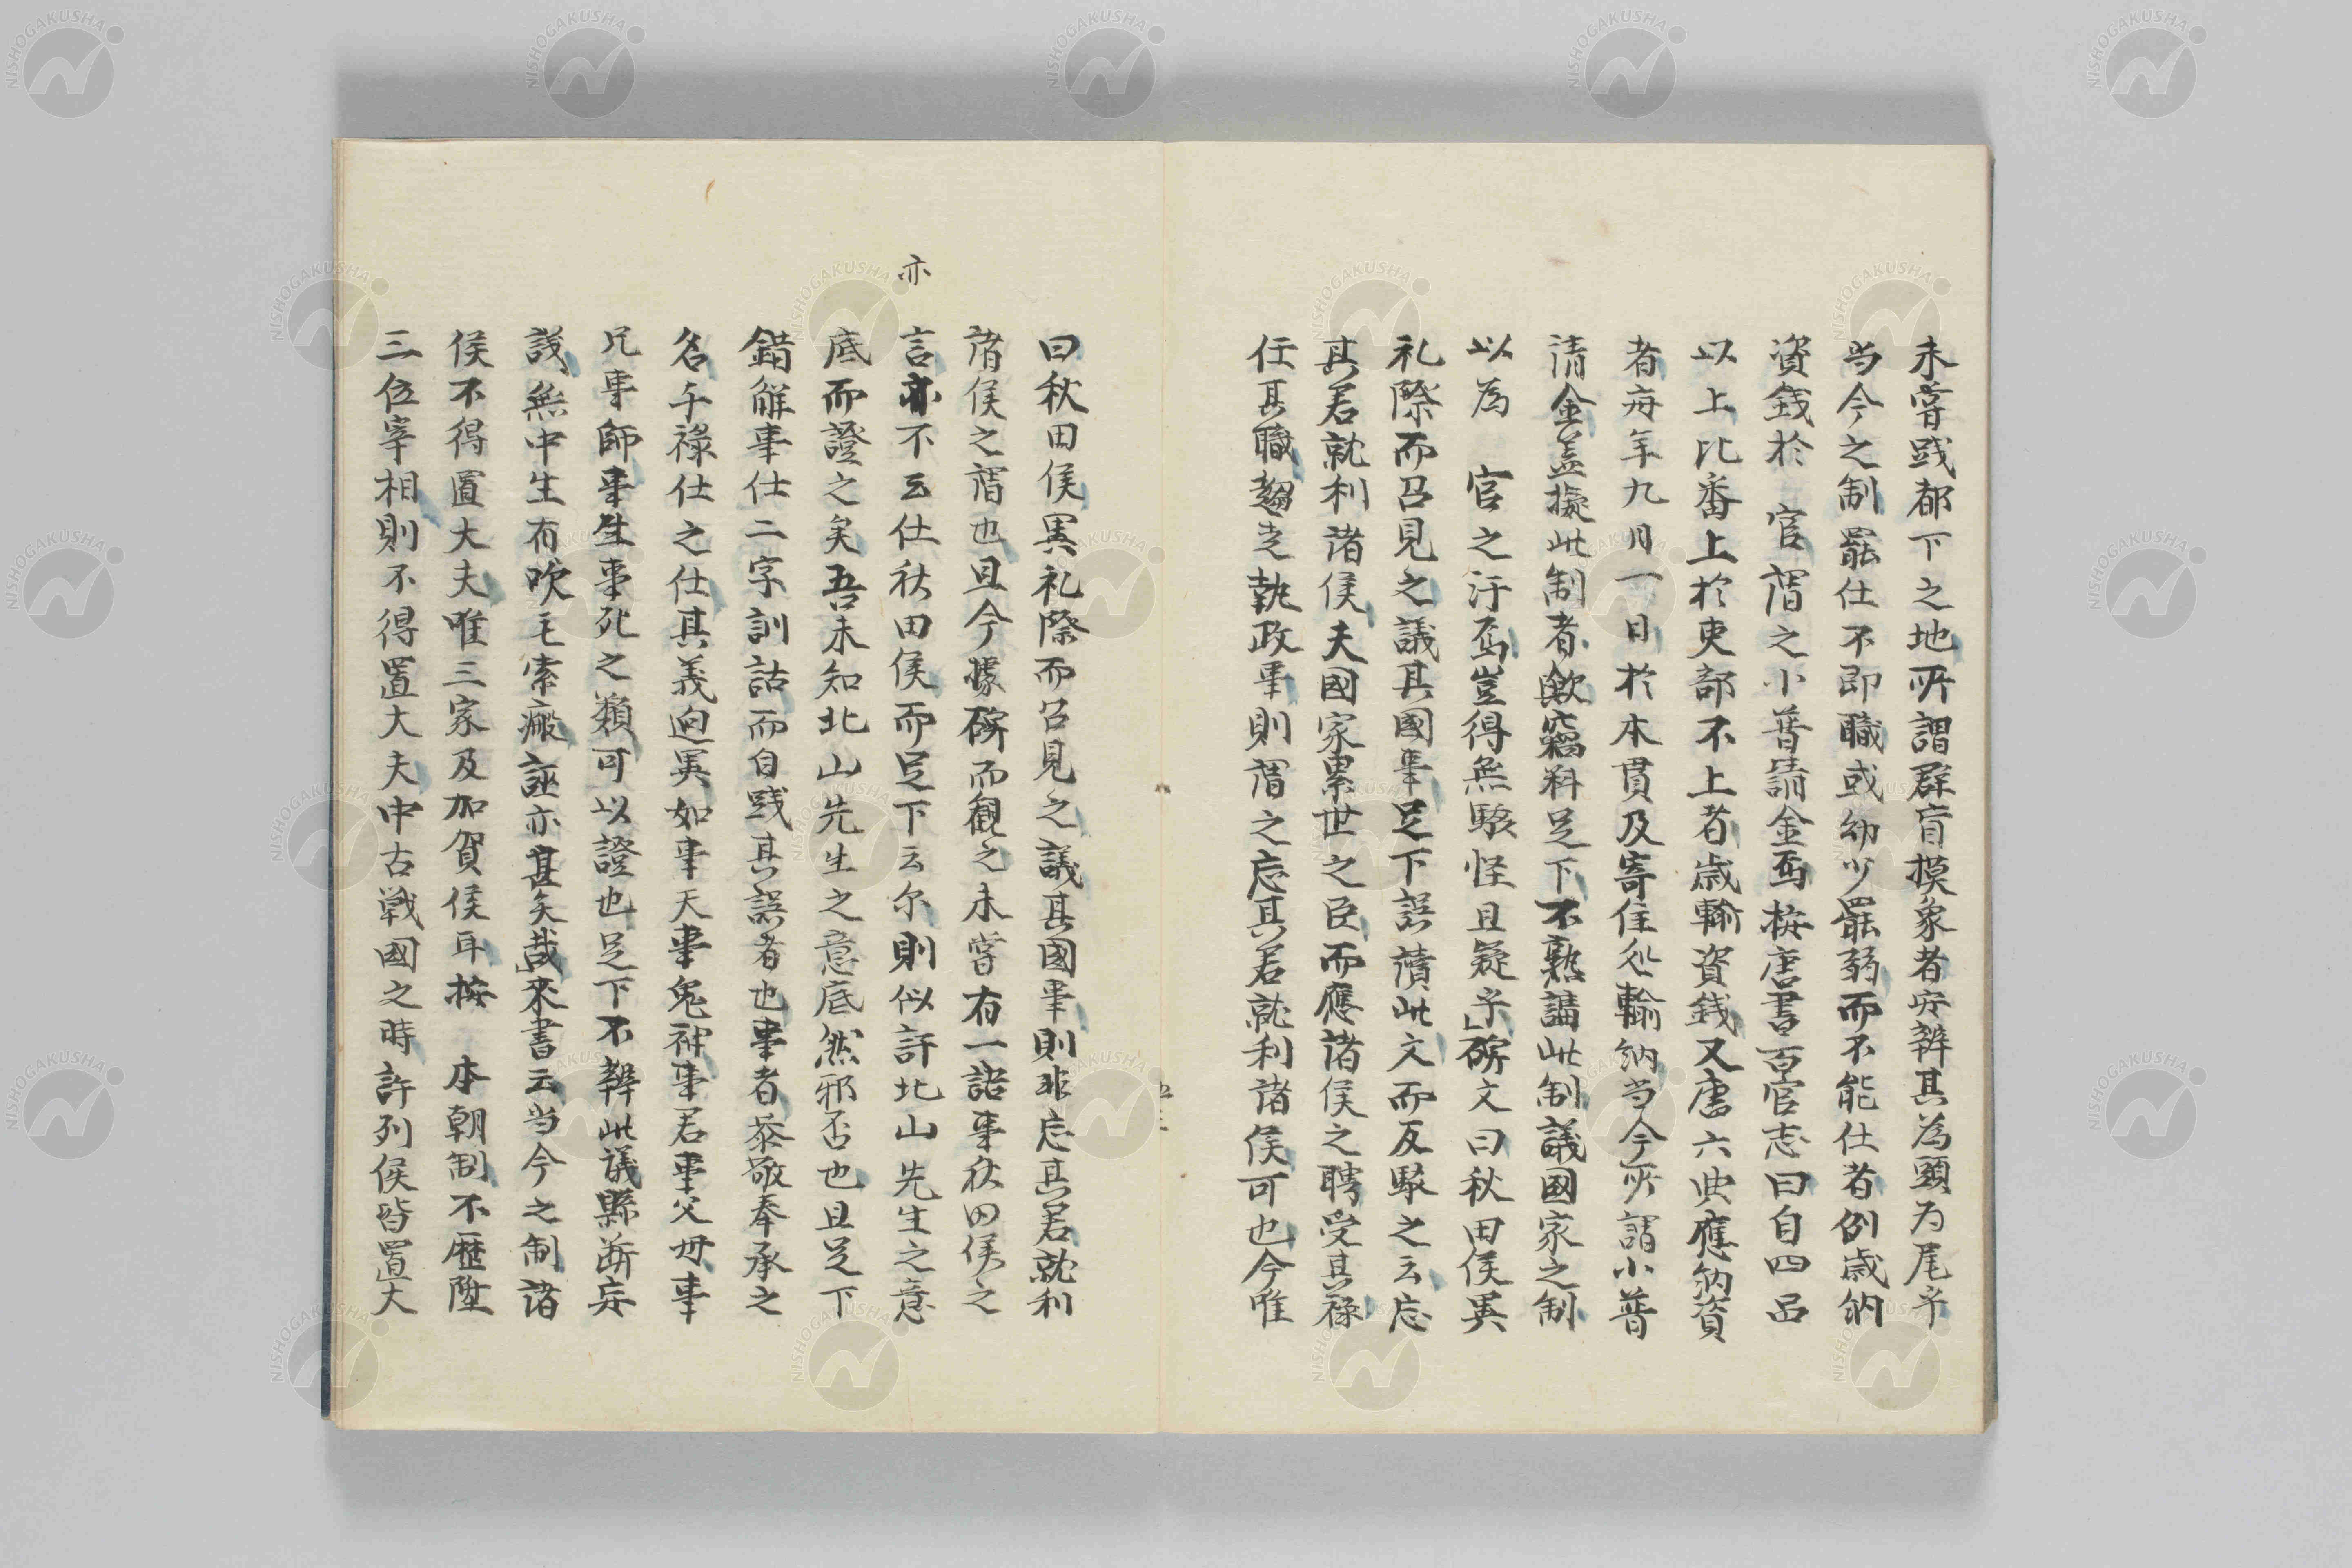 未嘗践都下之地所謂群盲摸象者安辨其為頭为尾乎
当今之制罷仕不即職或幼少罷弱而不能仕者例歳納
資銭於　官謂之小普請金焉按唐書百官志曰自四品
以上比番上於吏部不上者歳輸資銭又唐六典應納資
者毎年九月一日於本貫及寄住処輸納当今所謂小普
清金盖擬此制者歟竊料足下不熟講此制議國家之制
以為　官之汙焉豈得無駭怪且疑乎碑文曰秋田侯異
礼際而召見之議其國事足下誤讀此文而反駁之云忘
其君就利諸侯夫國家累世之臣而應諸侯之聘受其禄
任其職趨走執政事則謂之忘其君就利諸侯可也今唯
曰秋田侯異礼際而召見之議其國事則非忘其君就利
諸侯之謂也且今據碑而観之未嘗有一語事秋田侯之
亦
言亦不云仕秋田侯而足下云尔則似訐北山先生之意
底而證之矣吾未知北山先生之意底然邪否也且足下
錯解事仕二字訓詁而自践其誤者也事者恭敬奉承之
名千禄仕之仕其義迥異如事天事鬼神事君事父毋事
兄事師事生事死之類可以證也足下不辨此議縣断妄
議無中生有吹毛索瘢誣亦甚矣哉来書云当今之制諸
侯不得置大夫唯三家及加賀侯耳按　本朝制不歴陞
三位宰相則不得置大夫中古戦國之時許列侯皆置大
NISHOGAKUSHA